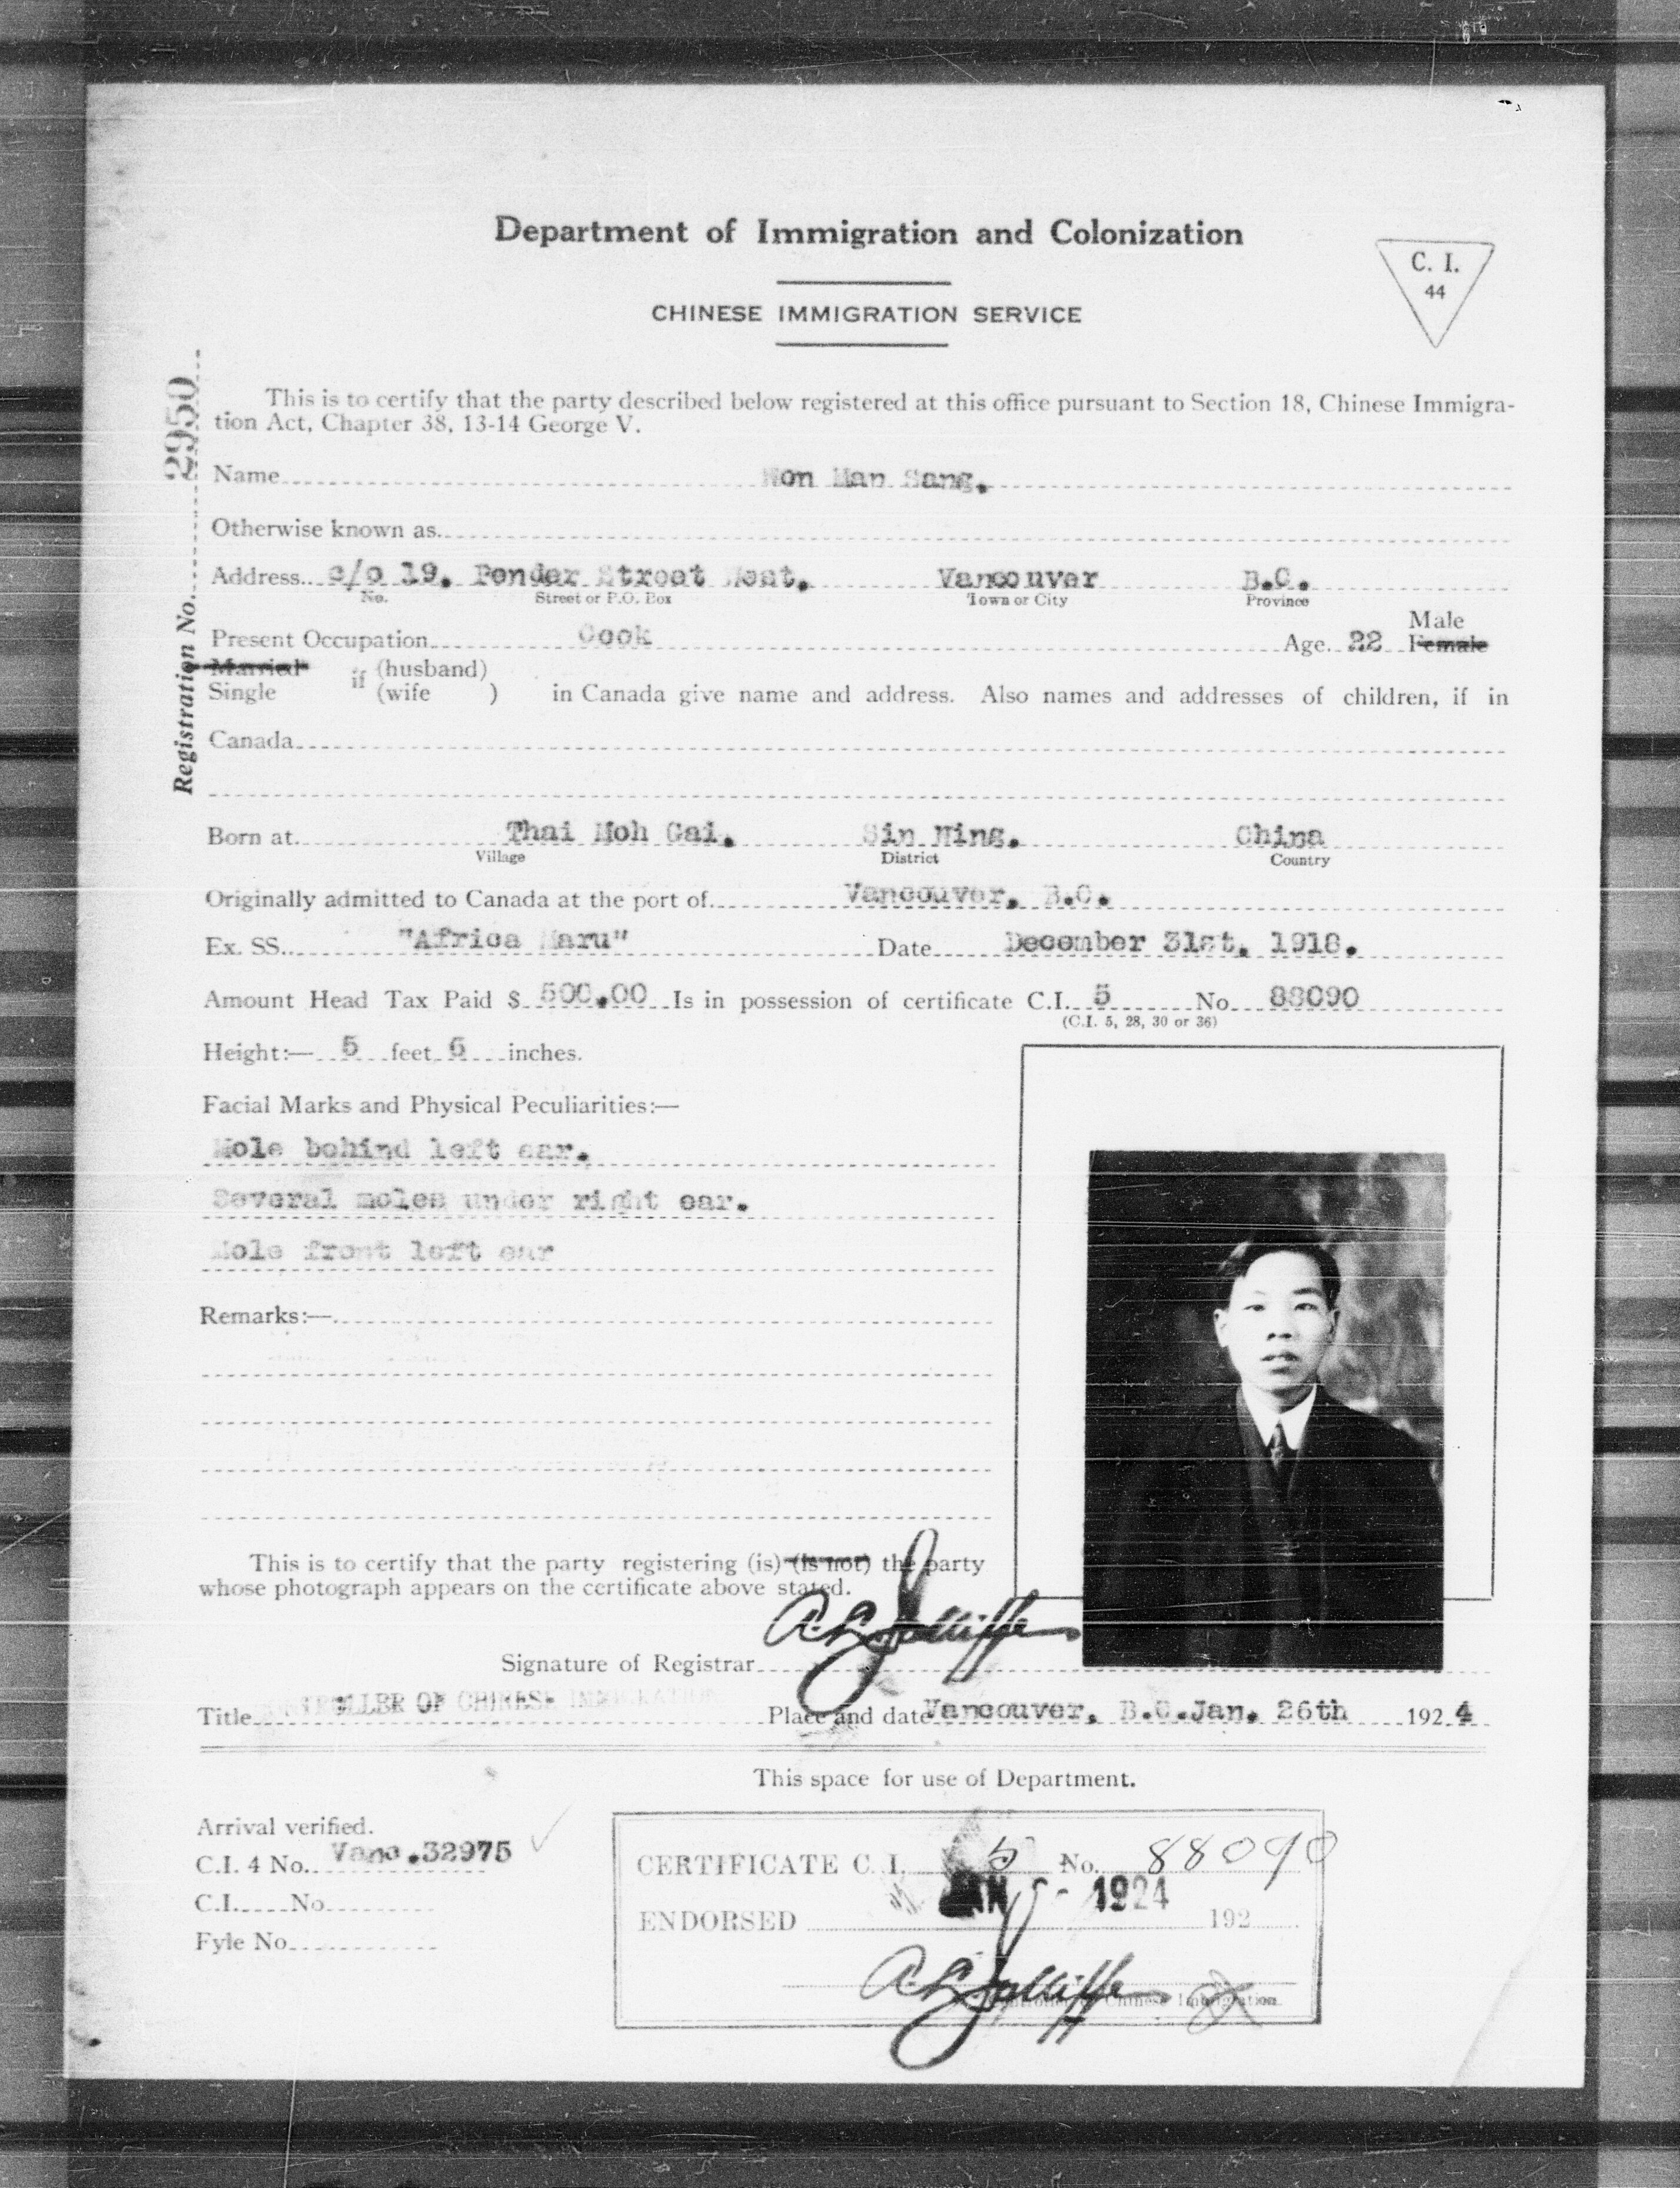 Department of Immigration and Colonization
C. I.
44
CHINESE IMMIGRATION SERVICE
Registration No. 2950
This is to certify that the party described below registered at this office pursuant to Section 18, Chinese Immigra-
tion Act, Chapter 38, 13-14 George V.
Name Won Man Sang.
Otherwise known as
Address c/o 19. Pender Street West. Vancouver B.C.
No. Street or P.O. Box Town or City Province
Present Occupation Cook Age 22 Male Female
Married
Single if (husband) (wife ) in Canada give name and address. Also names and addresses of children, if in
Canada
Born at Thai Moh Gai. Sin Ning. China
Village District Country
Originally admitted to Canada at the port of Vancouver, B.C.
Ex. SS. "Africa Maru" Date December 31st, 1918.
Amount Head Tax Paid $ 500.00 Is in possession of certificate C.I. 5 No. 88090
(C.I. 5, 28, 30 or 36)
Height:— 5 feet 6 inches.
Facial Marks and Physical Peculiarities:—
Mole behind left ear.
Several moles under right ear.
Mole front left ear
Remarks:—
This is to certify that the party registering (is) (is not) the party
whose photograph appears on the certificate above stated.
Signature of Registrar A.L. Jolliffe
Title CONTROLLER OF CHINESE IMMIGRATION Place and date Vancouver, B.C. Jan. 26th 1924
This space for use of Department.
Arrival verified.
C.I. 4 No. Vanc.32975
C.I. No.
Fyle No.
CERTIFICATE C. I. 5 No. 88090
ENDORSED JAN 1924 192
A.L. Jolliffe
Controller of Chinese Immigration